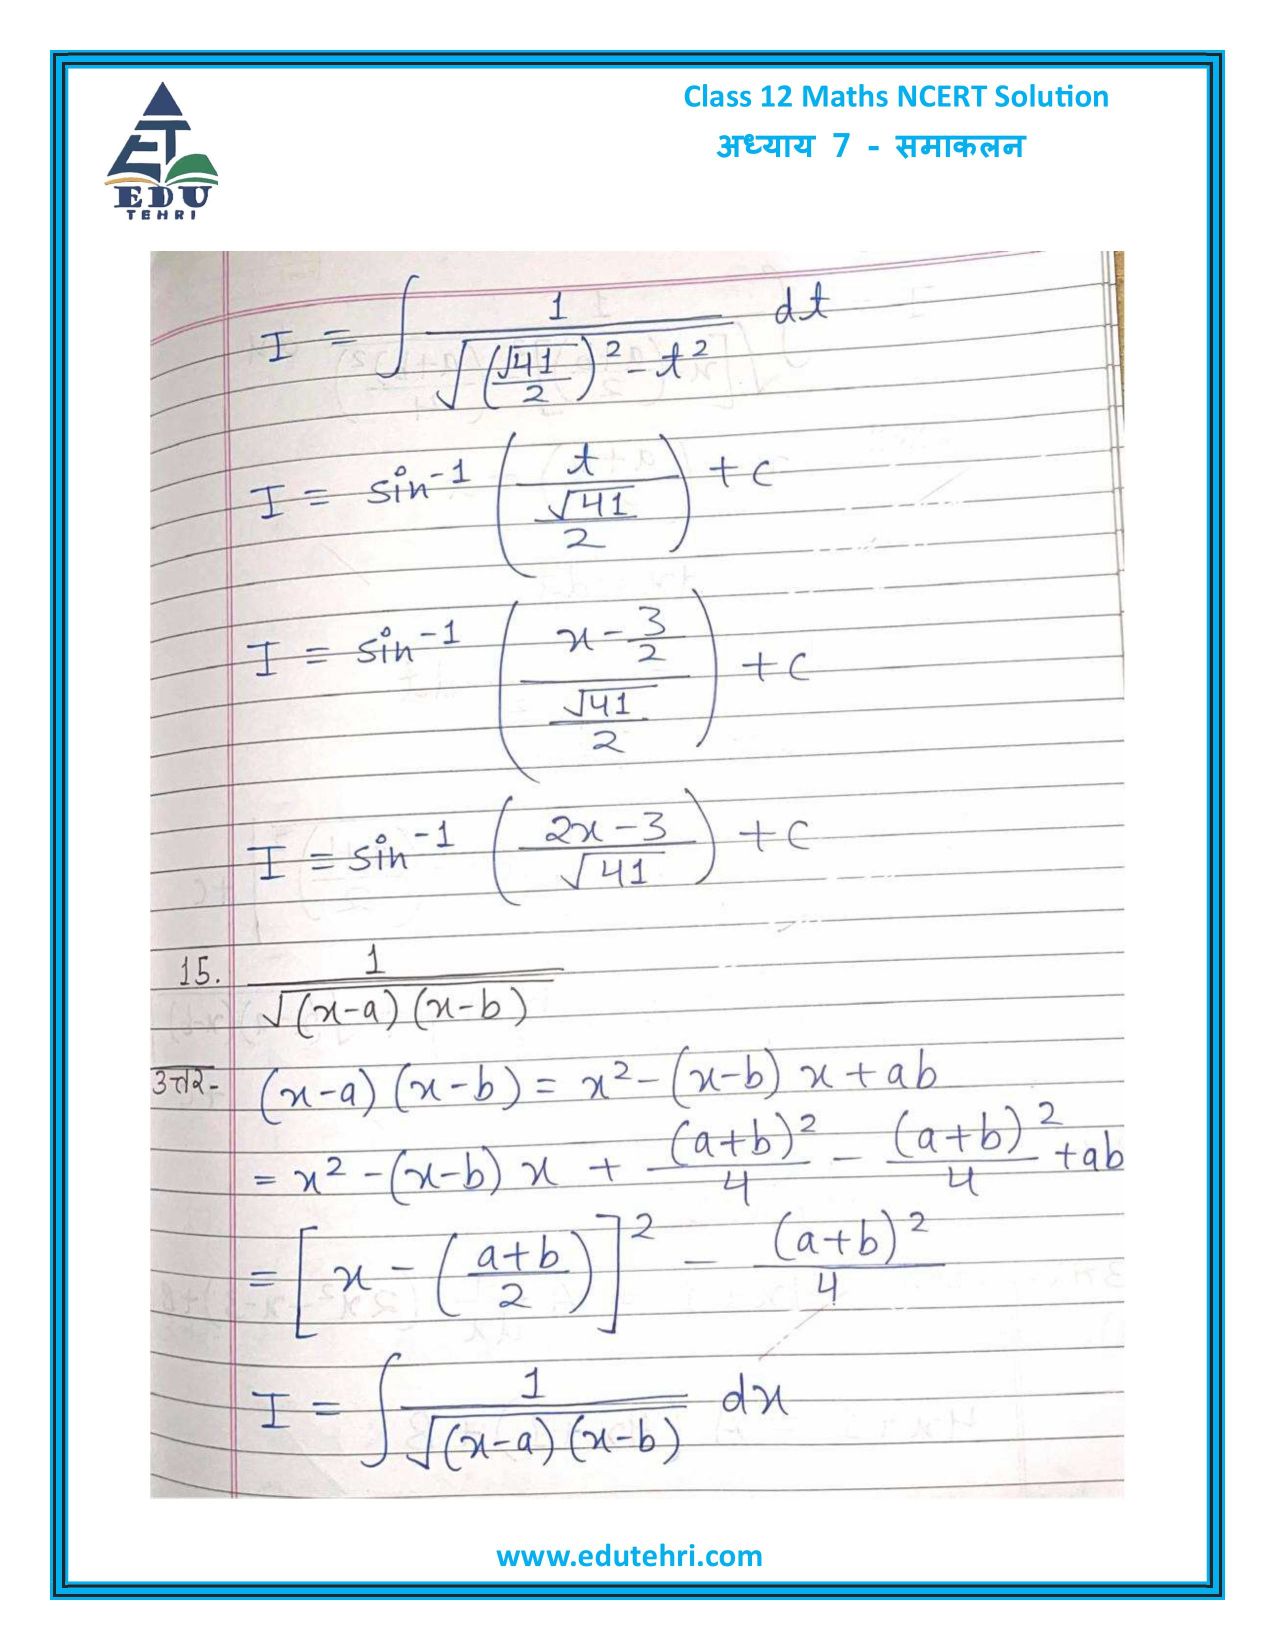 Class 12 Maths NCERT Solution
अध्याय 7 - समाकलन
EDU
TEHRI
I = ∫ 1/√((√41/2)² - t²) dt
I = sin⁻¹ (t/(√41/2)) + c
I = sin⁻¹ ((x - 3/2)/(√41/2)) + c
I = sin⁻¹ ((2x - 3)/√41) + c
15. 1/√((x-a)(x-b))
उत्तर- (x-a)(x-b) = x² - (x-b) x + ab
= x² - (x-b) x + (a+b)²/4 - (a+b)²/4 + ab
= [x - ((a+b)/2)]² - (a+b)²/4
I = ∫ 1/√((x-a)(x-b)) dx
www.edutehri.com